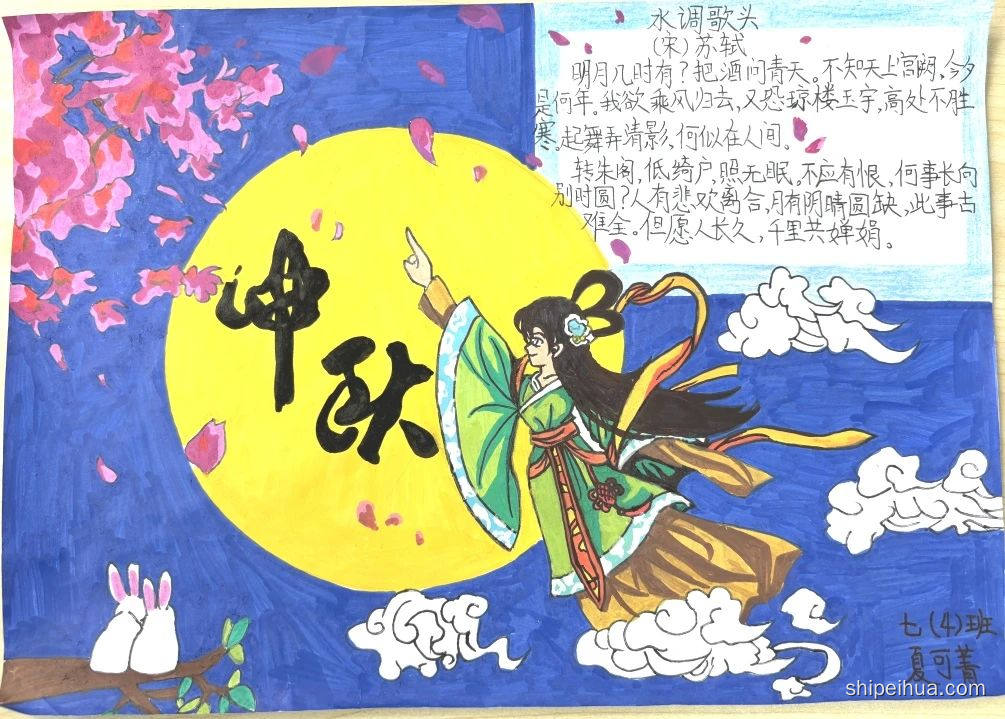 水调歌头
（宋）苏轼
明月几时有？把酒问青天。不知天上宫阙，今夕
是何年。我欲乘风归去，又恐琼楼玉宇，高处不胜
寒。起舞弄清影，何似在人间。
转朱阁，低绮户，照无眠。不应有恨，何事长向
别时圆？人有悲欢离合，月有阴晴圆缺，此事古
难全。但愿人长久，千里共婵娟。
中
秋
七（4）班
夏可菁
shipeihua.com